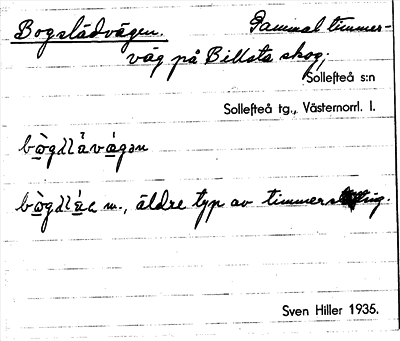 Bogslädvägen. Gammal timmer-
väg på Billsta skog,
Sollefteå s:n
Sollefteå tg., Västernorrl. l.
bògdlåvägən
bògdlä́a m., äldre typ av timmer
Sven Hiller 1935.